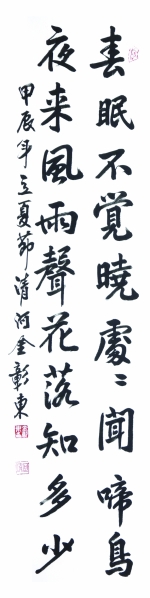 春眠不覺曉處〻聞啼鳥
夜来風雨聲花落知多少
甲辰年立夏節清河金彰東